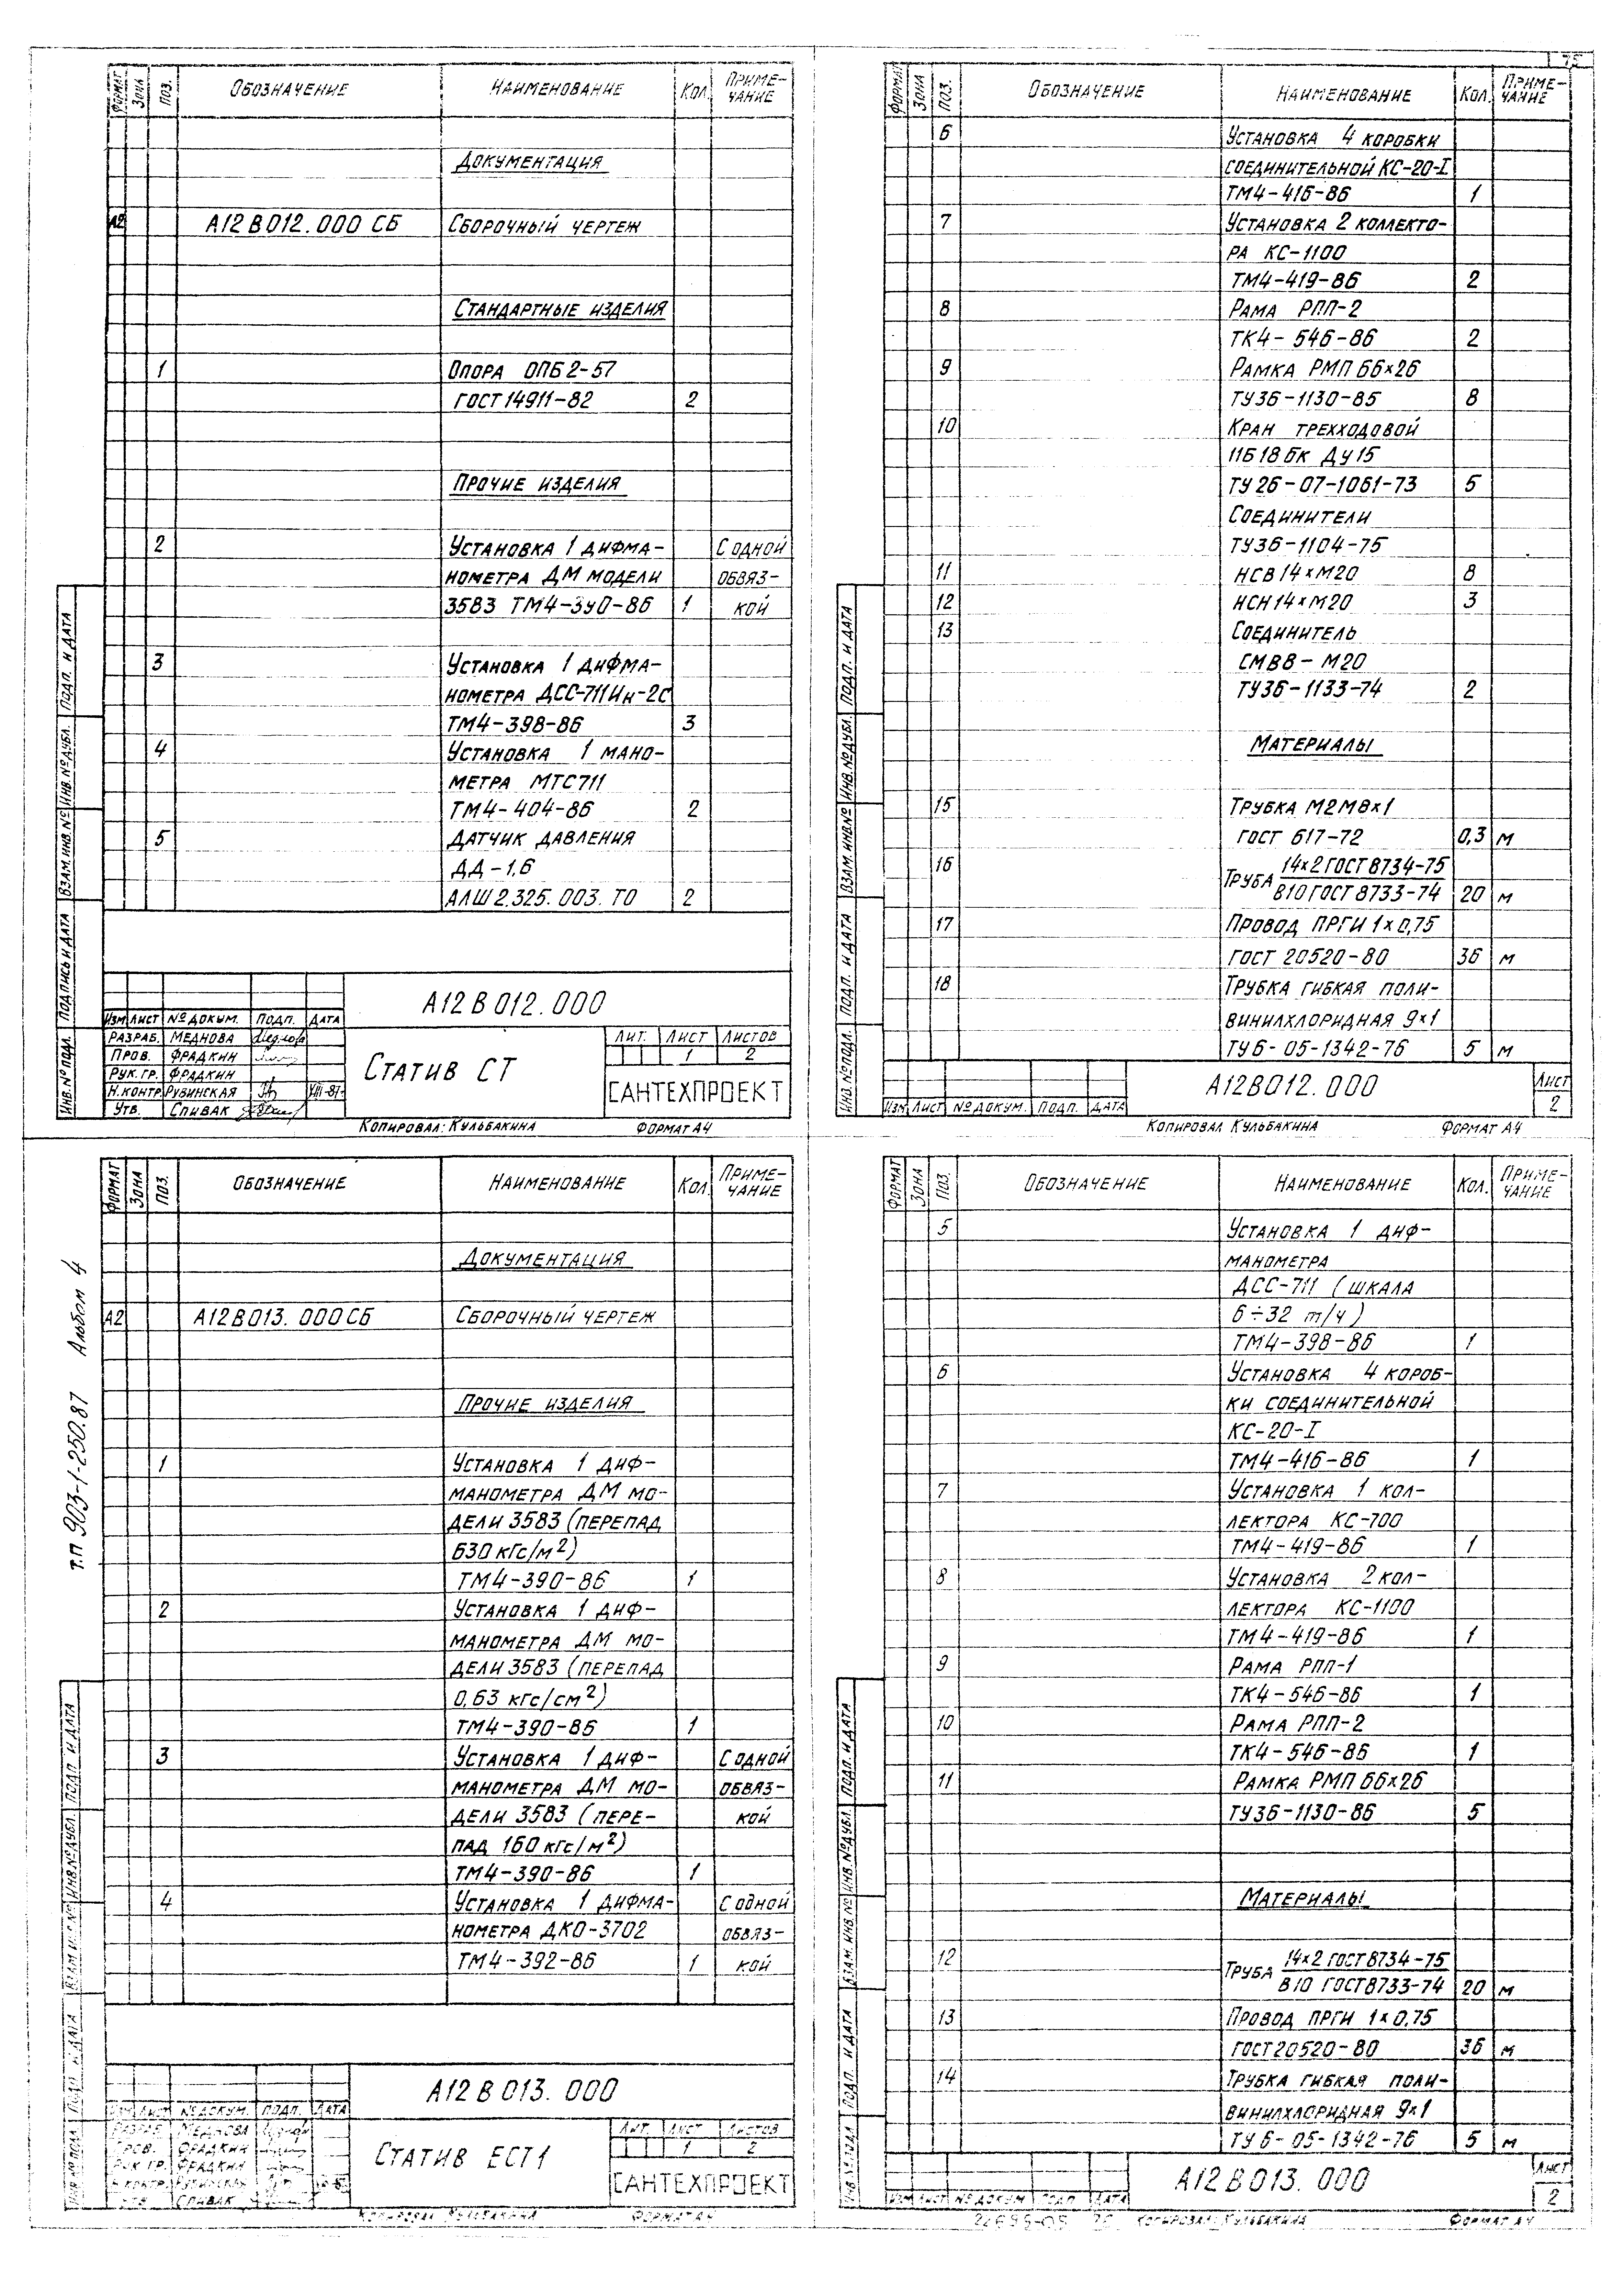 75
ФОРМАТ ЗОНА ПОЗ. ОБОЗНАЧЕНИЕ НАИМЕНОВАНИЕ КОЛ. ПРИМЕ-
ЧАНИЕ
ДОКУМЕНТАЦИЯ
А2 А12В012.000 СБ СБОРОЧНЫЙ ЧЕРТЕЖ
СТАНДАРТНЫЕ ИЗДЕЛИЯ
1 ОПОРА ОПБ2-57
ГОСТ 14911-82 2
ПРОЧИЕ ИЗДЕЛИЯ
2 УСТАНОВКА 1 ДИФМА- С ОДНОЙ
НОМЕТРА ДМ МОДЕЛИ ОБВЯЗ-
3583 ТМ4-390-86 1 КОЙ
3 УСТАНОВКА 1 ДИФМА-
НОМЕТРА ДСС-711Ин-2С
ТМ4-398-86 3
4 УСТАНОВКА 1 МАНО-
МЕТРА МТС711
ТМ4-404-86 2
5 ДАТЧИК ДАВЛЕНИЯ
ДД-1,6
АЛШ2.325.003.ТО 2
ИНВ.№ПОДЛ. ПОДПИСЬ И ДАТА ВЗАМ.ИНВ.№ ИНВ.№ДУБЛ. ПОДП. И ДАТА
А12В012.000
ИЗМ ЛИСТ №ДОКУМ. ПОДП. ДАТА
РАЗРАБ. МЕДНОВА
ПРОВ. ФРАДКИН
РУК.ГР. ФРАДКИН
Н.КОНТР. РУВИНСКАЯ VIII-87
УТВ. СПИВАК
СТАТИВ СТ
ЛИТ. ЛИСТ ЛИСТОВ
1 2
САНТЕХПРОЕКТ
КОПИРОВАЛ: КУЛЬБАКИНА ФОРМАТ А4
ФОРМАТ ЗОНА ПОЗ. ОБОЗНАЧЕНИЕ НАИМЕНОВАНИЕ КОЛ. ПРИМЕ-
ЧАНИЕ
6 УСТАНОВКА 4 КОРОБКИ
СОЕДИНИТЕЛЬНОЙ КС-20-I
ТМ4-416-86 1
7 УСТАНОВКА 2 КОЛЛЕКТО-
РА КС-1100
ТМ4-419-86 2
8 РАМА РПП-2
ТК4-546-86 2
9 РАМКА РМП 66×26
ТУ36-1130-85 8
10 КРАН ТРЕХХОДОВОЙ
11Б18бк ДУ15
ТУ26-07-1061-73 5
СОЕДИНИТЕЛИ
ТУ36-1104-75
11 НСВ14×М20 8
12 НСН14×М20 3
13 СОЕДИНИТЕЛЬ
СМВ8-М20
ТУ36-1133-74 2
МАТЕРИАЛЫ
15 ТРУБКА М2М8×1
ГОСТ 617-72 0,3 м
16 ТРУБА 14×2 ГОСТ8734-75
В10 ГОСТ8733-74 20 м
17 ПРОВОД ПРГИ 1×0,75
ГОСТ 20520-80 36 м
18 ТРУБКА ГИБКАЯ ПОЛИ-
ВИНИЛХЛОРИДНАЯ 9×1
ТУ6-05-1342-76 5 м
ИНВ.№ПОДЛ. ПОДП. И ДАТА ВЗАМ.ИНВ.№ ИНВ.№ДУБЛ. ПОДП. И ДАТА
ИЗМ ЛИСТ №ДОКУМ. ПОДП. ДАТА
А12В012.000
ЛИСТ
2
КОПИРОВАЛ КУЛЬБАКИНА ФОРМАТ А4
т.п 903-1-250.87 Альбом 4
ФОРМАТ ЗОНА ПОЗ. ОБОЗНАЧЕНИЕ НАИМЕНОВАНИЕ КОЛ. ПРИМЕ-
ЧАНИЕ
ДОКУМЕНТАЦИЯ
А2 А12В013.000СБ СБОРОЧНЫЙ ЧЕРТЕЖ
ПРОЧИЕ ИЗДЕЛИЯ
1 УСТАНОВКА 1 ДИФ-
МАНОМЕТРА ДМ МО-
ДЕЛИ 3583 (ПЕРЕПАД
630 кГс/м²)
ТМ4-390-86 1
2 УСТАНОВКА 1 ДИФ-
МАНОМЕТРА ДМ МО-
ДЕЛИ 3583 (ПЕРЕПАД
0,63 кГс/см²)
ТМ4-390-86 1
3 УСТАНОВКА 1 ДИФ- С ОДНОЙ
МАНОМЕТРА ДМ МО- ОБВЯЗ-
ДЕЛИ 3583 (ПЕРЕ- КОЙ
ПАД 160 кГс/м²)
ТМ4-390-86 1
4 УСТАНОВКА 1 ДИФМА- С ОДНОЙ
НОМЕТРА ДКО-3702 ОБВЯЗ-
ТМ4-392-86 1 КОЙ
ПОДП. И ДАТА ВЗАМ.ИНВ.№ ИНВ.№ДУБЛ. ПОДП. И ДАТА
А12В013.000
ИЗМ ЛИСТ №ДОКУМ. ПОДП. ДАТА
РАЗРАБ. МЕДНОВА
ПРОВ. ФРАДКИН
РУК.ГР. ФРАДКИН
Н.КОНТР. РУВИНСКАЯ
УТВ. СПИВАК
СТАТИВ ЕСТ1
ЛИТ. ЛИСТ ЛИСТОВ
1 2
САНТЕХПРОЕКТ
КОПИРОВАЛ КУЛЬБАКИНА ФОРМАТ А4
ФОРМАТ ЗОНА ПОЗ. ОБОЗНАЧЕНИЕ НАИМЕНОВАНИЕ КОЛ. ПРИМЕ-
ЧАНИЕ
5 УСТАНОВКА 1 ДИФ-
МАНОМЕТРА
ДСС-711 (ШКАЛА
6÷32 т/ч)
ТМ4-398-86 1
6 УСТАНОВКА 4 КОРОБ-
КИ СОЕДИНИТЕЛЬНОЙ
КС-20-I
ТМ4-416-86 1
7 УСТАНОВКА 1 КОЛ-
ЛЕКТОРА КС-700
ТМ4-419-86 1
8 УСТАНОВКА 2 КОЛ-
ЛЕКТОРА КС-1100
ТМ4-419-86 1
9 РАМА РПП-1
ТК4-546-86 1
10 РАМА РПП-2
ТК4-546-86 1
11 РАМКА РМП 66×26
ТУ36-1130-86 5
МАТЕРИАЛЫ
12 ТРУБА 14×2 ГОСТ8734-75
В10 ГОСТ8733-74 20 м
13 ПРОВОД ПРГИ 1×0,75
ГОСТ20520-80 36 м
14 ТРУБКА ГИБКАЯ ПОЛИ-
ВИНИЛХЛОРИДНАЯ 9×1
ТУ 6-05-1342-76 5 м
ИНВ.№ПОДЛ. ПОДП. И ДАТА ВЗАМ.ИНВ.№ ИНВ.№ДУБЛ. ПОДП. И ДАТА
ИЗМ ЛИСТ №ДОКУМ ПОДП. ДАТА
А12В013.000
ЛИСТ
2
КОПИРОВАЛ: КУЛЬБАКИНА ФОРМАТ А4